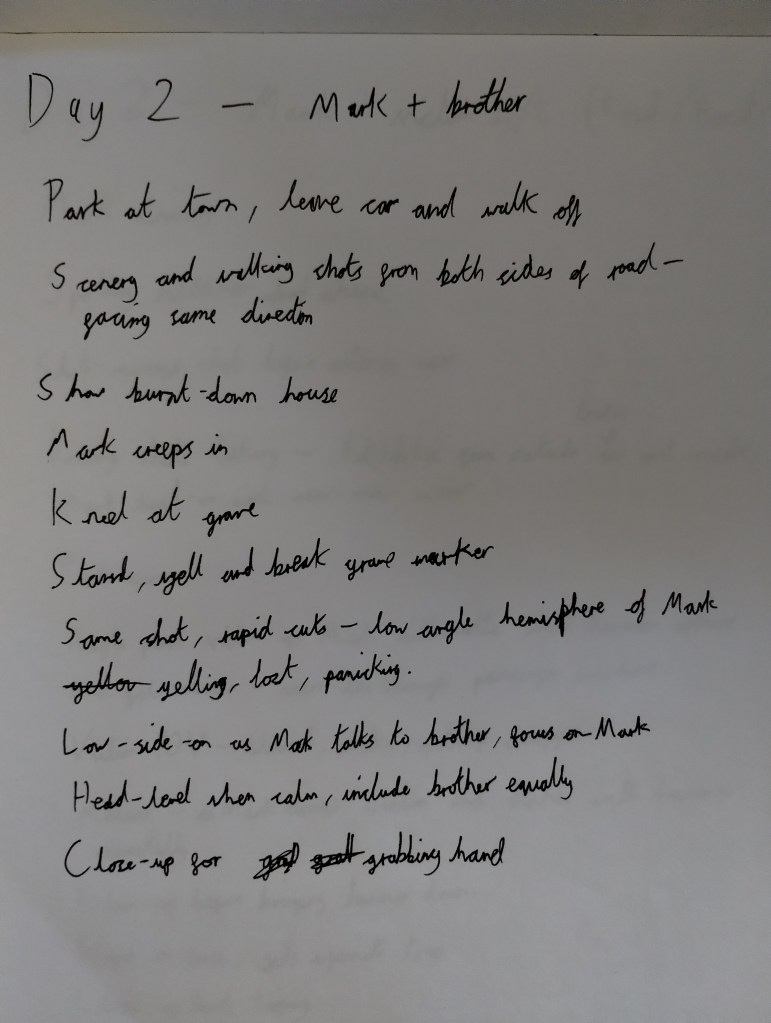 Day 2 - Mark + brother
Park at town, leave car and walk off
Scenery and walking shots from both sides of road -
facing same direction
Show burnt-down house
Mark creeps in
Kneel at grave
Stand, yell and break grave marker
Same shot, rapid cuts - low angle hemisphere of Mark
yellow yelling, lost, panicking.
Low-side-on as Mark talks to brother, focus on Mark
Head-level when calm, include brother equally
Close-up for grabbing hand